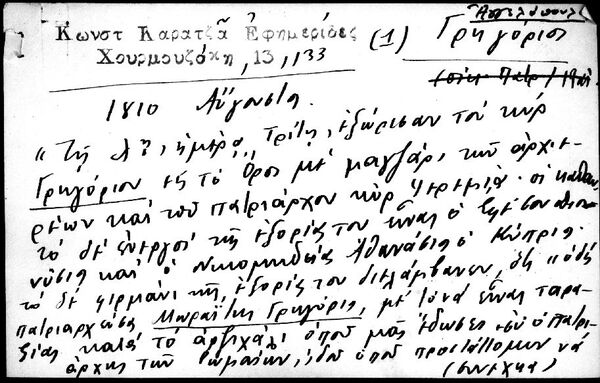 Ἀγγελόπουλ
Κωνστ Καρατζᾶ Ἐφημερίδες (1) Γρηγόριος
Χουρμουζάκη, 13, 133
1810 Αὔγουστ.
"Τῇ λ?, ἡμέρᾳ Τρίτῃ, ἐξώρισαν τὸν κὺρ
Γρηγόριον εἰς τὸ Ὄρος μὲ μαγζάρ, τῶν ἀρχιε-
ρέων καὶ τοῦ πατριάρχου κὺρ Ἱερεμίᾳ. οἱ
τὸ δὲ ἐνεργοὶ τῆς ἐξορίας του εἶναι ὁ
καὶ ὁ Νικομηδείας Ἀθανάσιος ὁ Κύπριος.
τὸ δὲ φιρμάνι τῆς ἐξορίας του διελάμβανεν, ὅτι "ὁ
πατριαρχεύσας Μωραΐτης Γρηγόρις, μὲ τὸ νὰ εἶναι ταρα-
ξίας κατὰ τὸ ἀρζιχάλι ὁποῦ μᾶς ἔδωσες ἐσὺ ὁ πατρι-
άρχης τῶν Ῥωμαίων, ἰδοὺ ὁποῦ προστάττομεν νὰ
(συνέχεια)